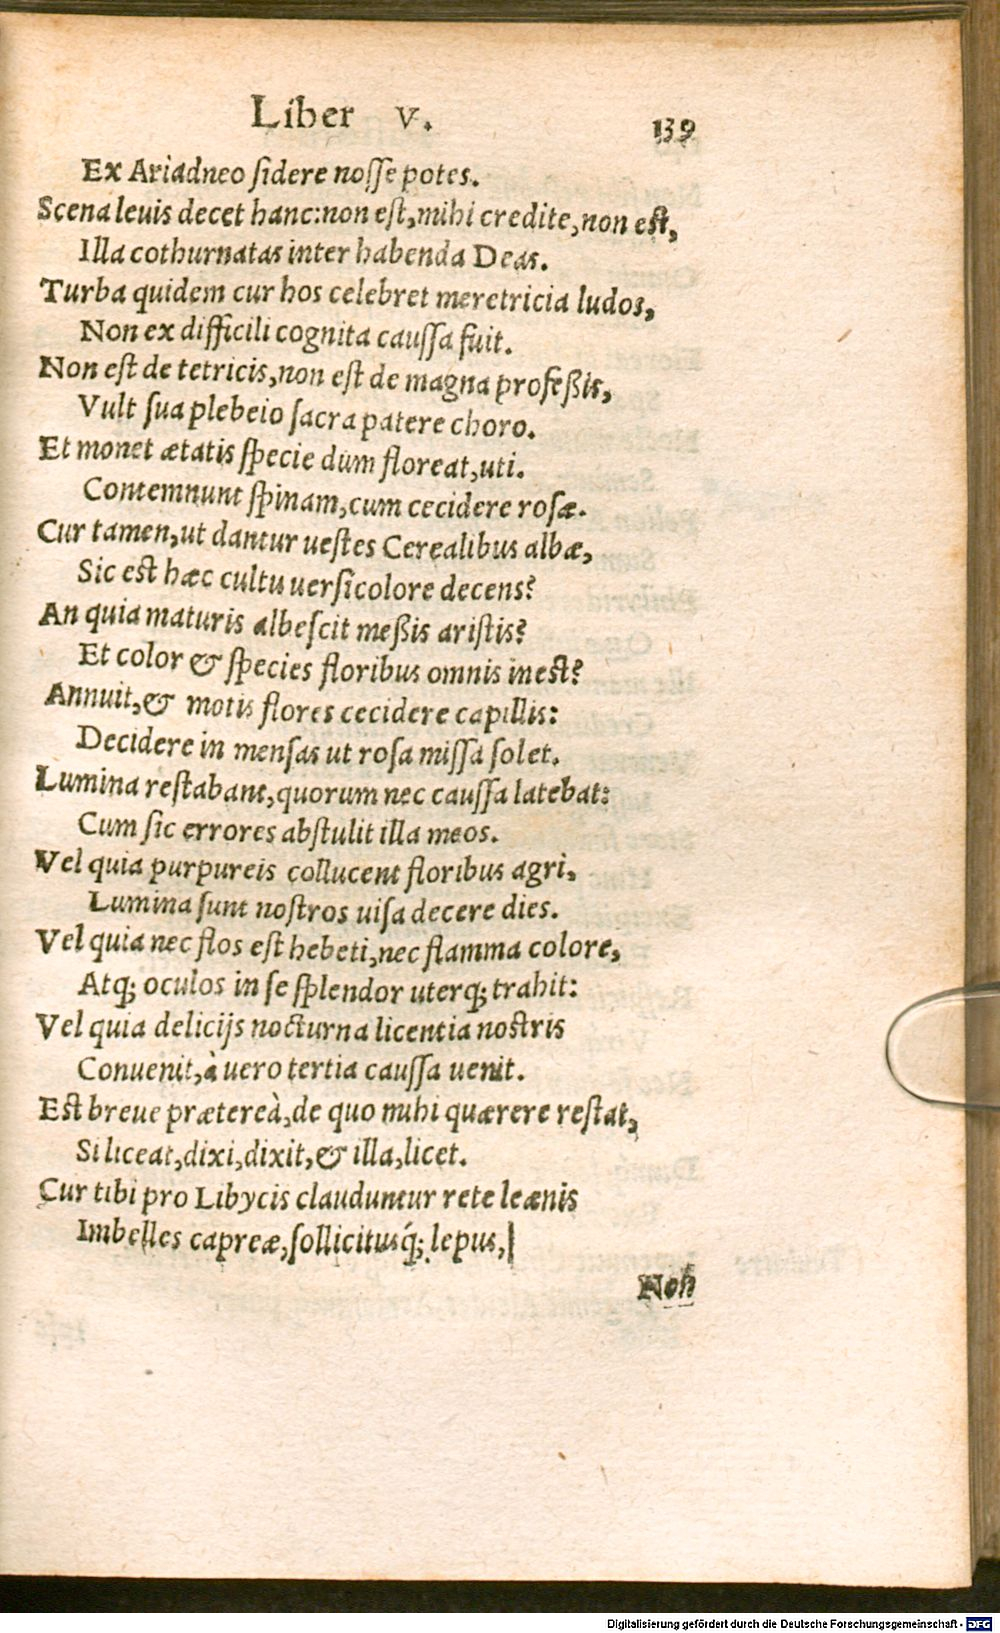 Liber V.
139
Ex Ariadneo ſidere noſſe potes.
Scena leuis decet hanc: non eſt, mihi credite, non eſt,
Illa cothurnatas inter habenda Deas.
Turba quidem cur hos celebret meretricia ludos,
Non ex difficili cognita cauſſa fuit.
Non eſt de tetricis, non eſt de magna profeßis,
Vult ſua plebeio ſacra patere choro.
Et monet ætatis ſpecie dum floreat, uti.
Contemnunt ſpinam, cum cecidere roſæ.
Cur tamen, ut dantur ueſtes Cerealibus albæ,
Sic eſt hæc cultu uerſicolore decens?
An quia maturis albeſcit meßis ariſtis?
Et color & ſpecies floribus omnis ineſt?
Annuit, & motis flores cecidere capillis:
Decidere in menſas ut roſa miſſa ſolet.
Lumina reſtabant, quorum nec cauſſa latebat:
Cum ſic errores abſtulit illa meos.
Vel quia purpureis collucent floribus agri,
Lumina ſunt noſtros uiſa decere dies.
Vel quia nec flos eſt hebeti, nec flamma colore,
Atq; oculos in ſe ſplendor uterq; trahit:
Vel quia delicijs nocturna licentia noſtris
Conuenit, à uero tertia cauſſa uenit.
Eſt breue prætereà, de quo mihi quærere reſtat,
Si liceat, dixi, dixit, & illa, licet.
Cur tibi pro Libycis clauduntur rete leænis
Imbelles capreæ, ſollicitusq́; lepus,
Non
Digitalisierung gefördert durch die Deutsche Forschungsgemeinschaft - DFG